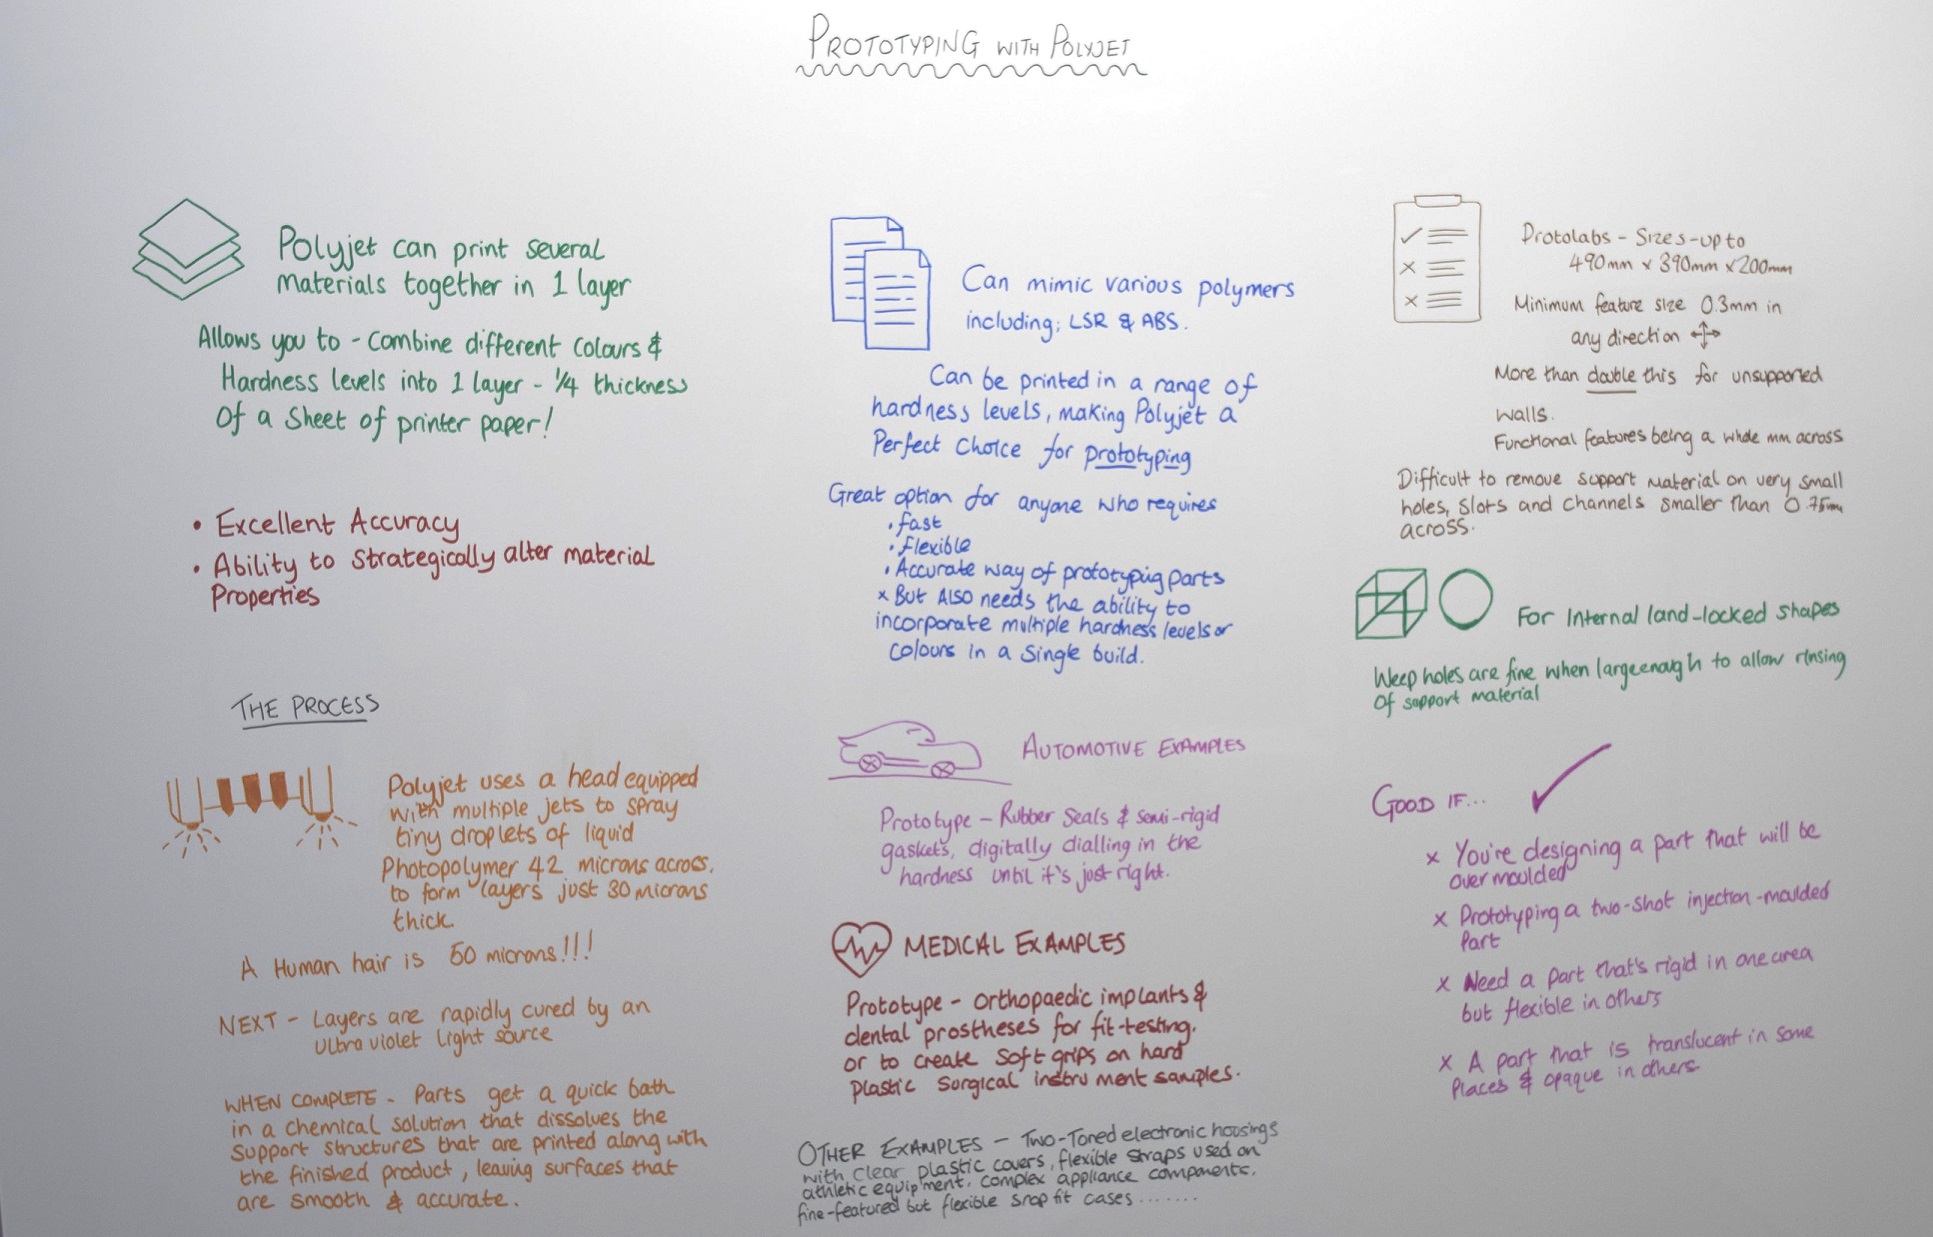 PROTOTYPING WITH POLYJET
Polyjet can print several
materials together in 1 layer
Allows you to - Combine different colours &
Hardness levels into 1 layer - 1/4 thickness
Of a Sheet of printer paper!
• Excellent Accuracy
• Ability to strategically alter material
Properties
THE PROCESS
Polyjet uses a head equipped
with multiple jets to spray
tiny droplets of liquid
Photopolymer 42 microns across,
to form layers just 30 microns
thick.
A Human hair is 50 microns!!!
NEXT - Layers are rapidly cured by an
Ultra violet light source
WHEN COMPLETE - Parts get a quick bath
in a chemical solution that dissolves the
support structures that are printed along with
the finished product, leaving surfaces that
are smooth & accurate.
Can mimic various polymers
including; LSR & ABS.
Can be printed in a range of
hardness levels, making Polyjet a
Perfect Choice for prototyping
Great option for anyone who requires
• fast
• flexible
• Accurate way of prototyping parts
x But ALSO needs the ability to
incorporate multiple hardness levels or
colours in a single build.
AUTOMOTIVE EXAMPLES
Prototype - Rubber Seals & semi-rigid
gaskets, digitally dialling in the
hardness until it's just right.
MEDICAL EXAMPLES
Prototype - orthopaedic implants &
dental prostheses for fit-testing.
or to create soft grips on hard
plastic surgical instrument samples.
OTHER EXAMPLES - Two-Toned electronic housings
with clear plastic covers, flexible straps used on
athletic equipment, complex appliance components.
fine-featured but flexible snap fit cases .......
Protolabs - Sizes - up to
490mm x 390mm x 200mm
Minimum feature size 0.3mm in
any direction
More than double this for unsupported
walls.
Functional features being a whole mm across
Difficult to remove support material on very small
holes, slots and channels smaller than 0.75mm
across.
For Internal land-locked shapes
Weep holes are fine when large enough to allow rinsing
Of support material
GOOD IF...
x You're designing a part that will be
over moulded
x Prototyping a two-shot injection-moulded
Part
x Need a part that's rigid in one area
but flexible in others
x A part that is translucent in some
Places & opaque in others